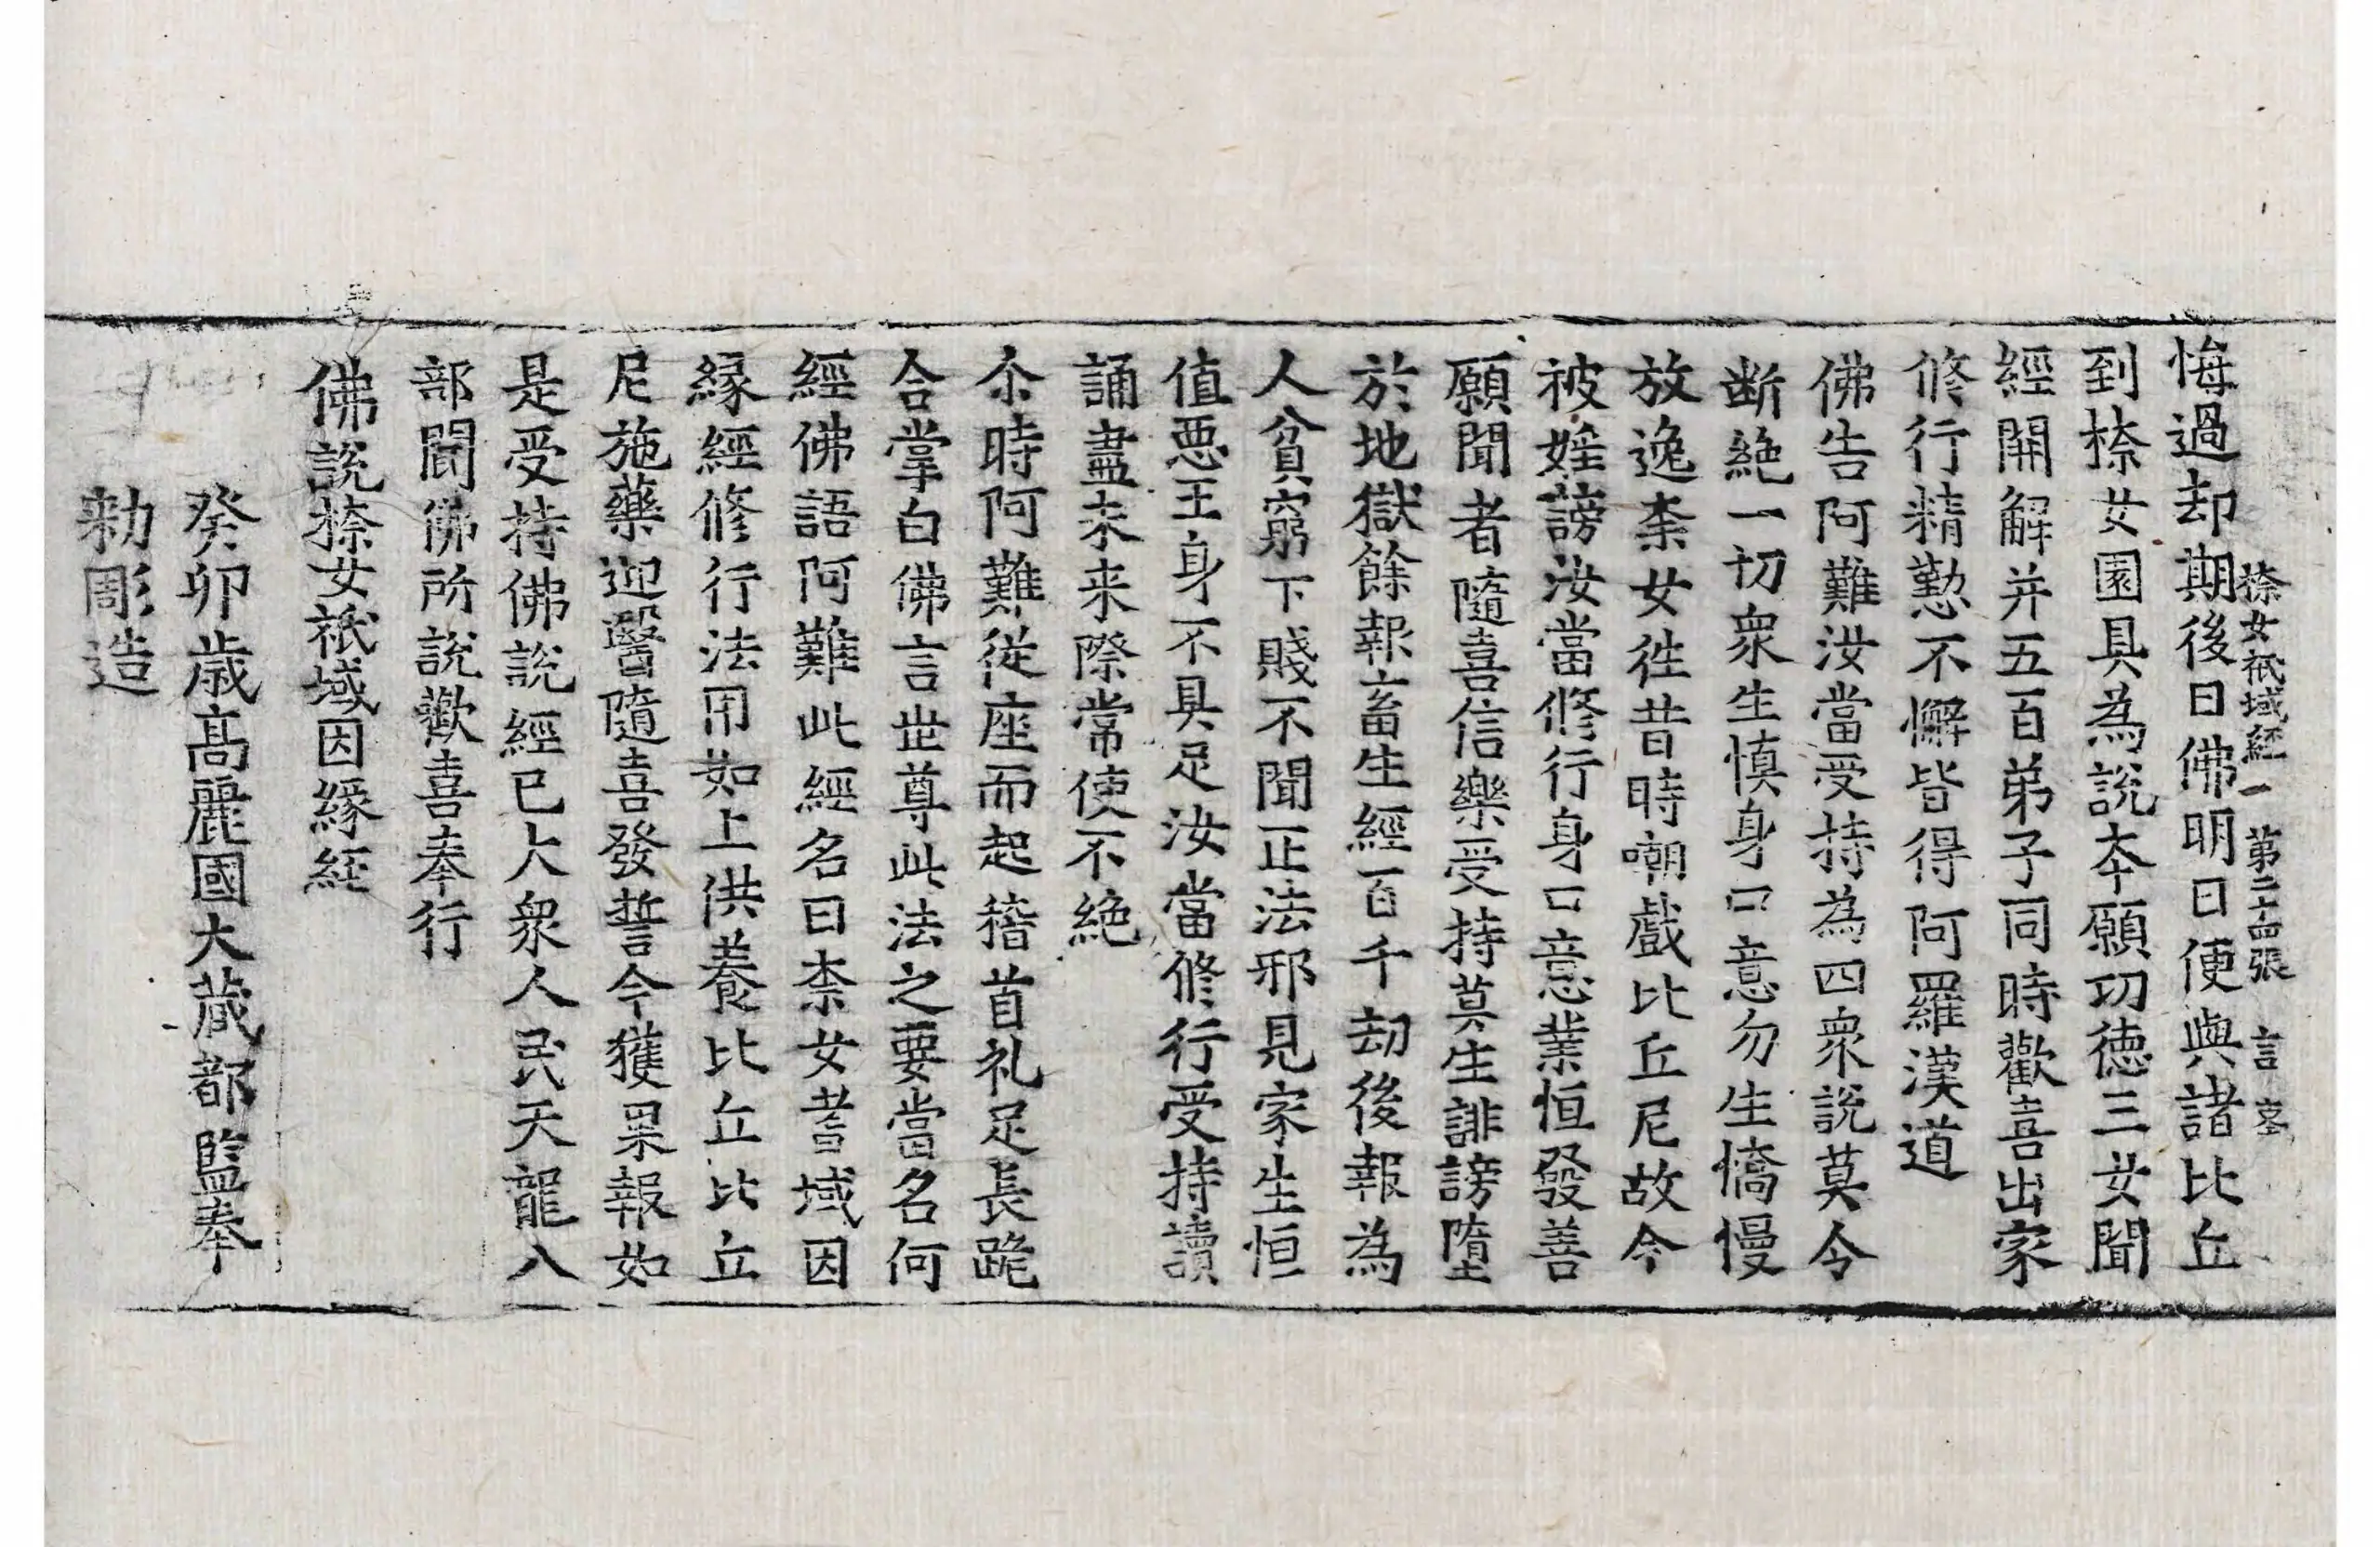 㮈女祇域經一　第二十四張　言
悔過却期後日佛明日便與諸比丘
到㮈女園具為說本願功德三女聞
經開解并五百弟子同時歡喜出家
修行精懃不懈皆得阿羅漢道
佛告阿難汝當受持為四衆說莫令
斷絕一切衆生慎身口意勿生憍慢
放逸柰女徃昔時嘲戲比丘尼故今
被婬謗汝當修行身口意業恒發善
願聞者隨喜信樂受持莫生誹謗墮
於地獄餘報畜生經百千劫後報為
人貧窮下賤不聞正法邪見家生恒
值惡王身不具足汝當修行受持讀
誦盡未来際常使不絕
尒時阿難從座而起稽首礼足長跪
合掌白佛言世尊此法之要當名何
經佛語阿難此經名曰柰女耆域因
緣經修行法用如上供養比丘比丘
尼施藥迎醫隨喜發誓今獲果報如
是受持佛說經已大衆人民天龍八
部聞佛所說歡喜奉行
佛說㮈女祇域因緣經
癸卯歲高麗國大藏都監奉
勑彫造